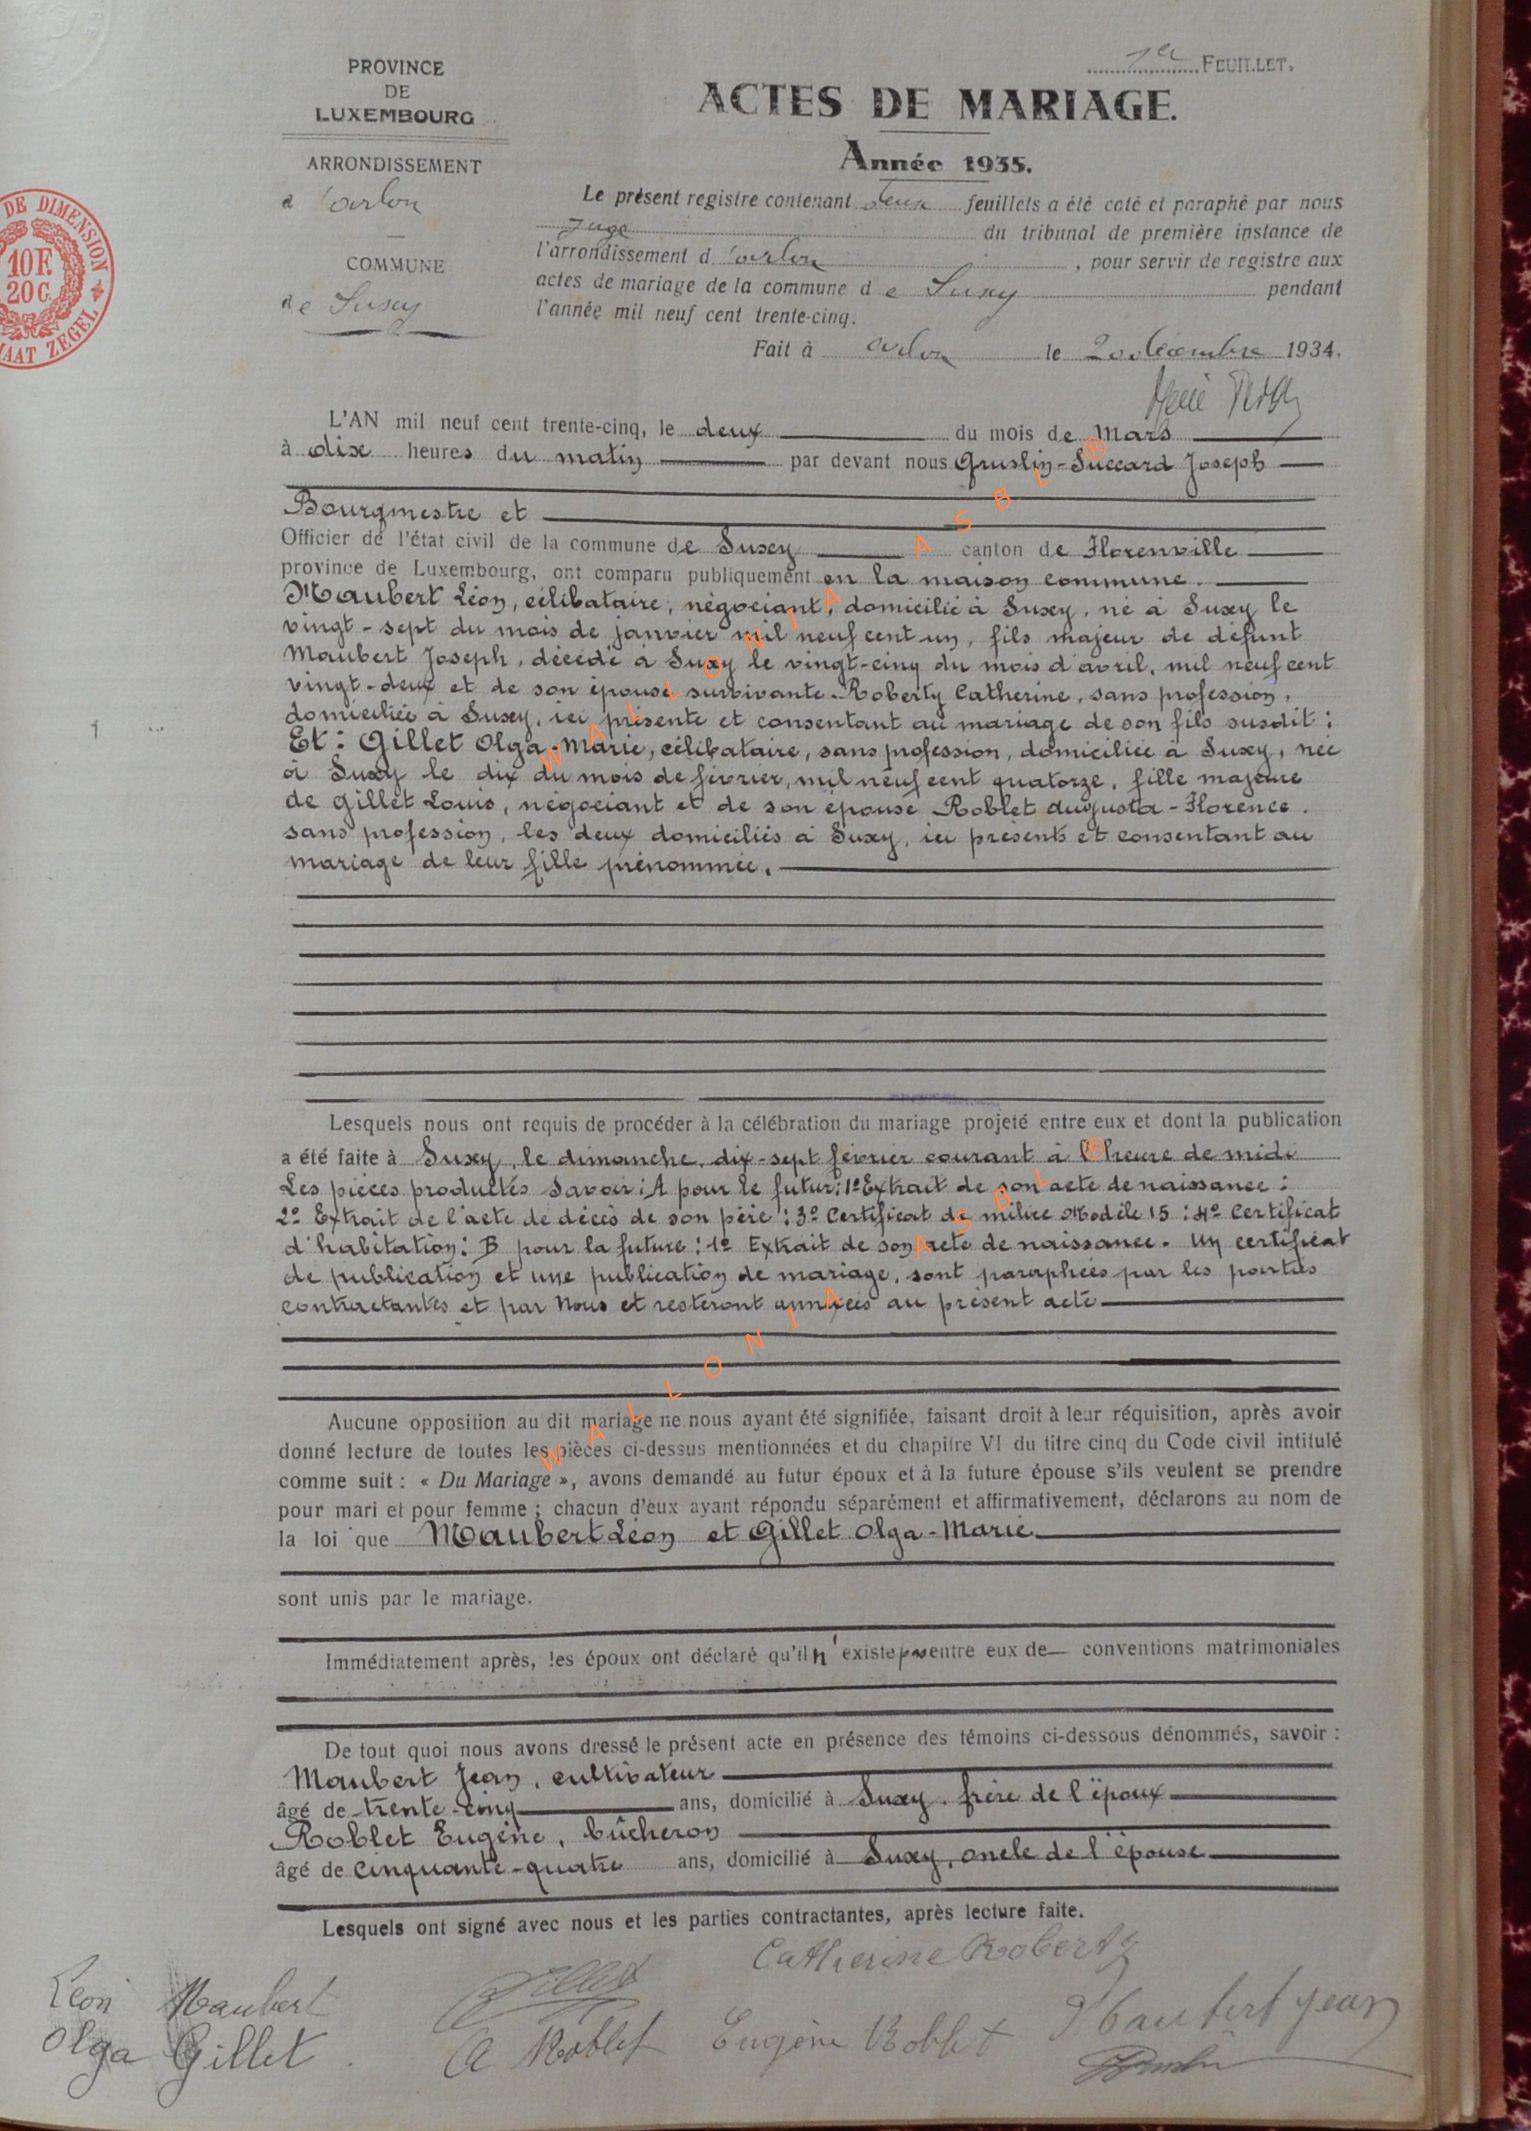 1er FEUILLET.
PROVINCE
DE
LUXEMBOURG
ACTES DE MARIAGE.
Année 1935.
ARRONDISSEMENT
d'Arlon
COMMUNE
de Suxy
DE DIMENSION
10F.
20C.
MAAT ZEGEL
Le présent registre contenant deux feuillets a été coté et paraphé par nous
Juge du tribunal de première instance de
l'arrondissement d'Arlon, pour servir de registre aux
actes de mariage de la commune de Suxy pendant
l'année mil neuf cent trente-cinq.
Fait à Arlon le 20 décembre 1934.
L'AN mil neuf cent trente-cinq, le deux du mois de Mars
à dix heures du matin par devant nous Gruslin-Succard Joseph
Bourgmestre et
Officier de l'état civil de la commune de Suxy canton de Florenville
province de Luxembourg, ont comparu publiquement en la maison commune.
Maubert Léon, célibataire, négociant, domicilié à Suxy, né à Suxy le
vingt-sept du mois de janvier mil neuf cent un, fils majeur de défunt
Maubert Joseph, décédé à Suxy le vingt-cinq du mois d'avril, mil neuf cent
vingt-deux et de son épouse survivante Roberty Catherine, sans profession,
domiciliée à Suxy, ici présente et consentant au mariage de son fils susdit ;
Et : Gillet Olga-Marie, célibataire, sans profession, domiciliée à Suxy, née
à Suxy le dix du mois de février, mil neuf cent quatorze, fille majeure
de Gillet Louis, négociant et de son épouse Roblet Augusta-Florence,
sans profession, les deux domiciliés à Suxy, ici présents et consentant au
mariage de leur fille prénommée.
Lesquels nous ont requis de procéder à la célébration du mariage projeté entre eux et dont la publication
a été faite à Suxy, le dimanche, dix-sept février courant à l'heure de midi
Les pièces productés Savoir : A pour le futur : 1º Extrait de son acte de naissance :
2º Extrait de l'acte de décès de son père : 3º Certificat de milice Modèle 15 : 4º Certificat
d'habitation : B pour la future : 1º Extrait de son acte de naissance. Un certificat
de publication et une publication de mariage, sont paraphées par les parties
contractantes et par Nous et resteront annexées au présent acte
Aucune opposition au dit mariage ne nous ayant été signifiée, faisant droit à leur réquisition, après avoir
donné lecture de toutes les pièces ci-dessus mentionnées et du chapitre VI du titre cinq du Code civil intitulé
comme suit : « Du Mariage », avons demandé au futur époux et à la future épouse s'ils veulent se prendre
pour mari et pour femme ; chacun d'eux ayant répondu séparément et affirmativement, déclarons au nom de
la loi que Maubert Léon et Gillet Olga-Marie
sont unis par le mariage.
Immédiatement après, les époux ont déclaré qu'il n'existe pas entre eux de conventions matrimoniales
De tout quoi nous avons dressé le présent acte en présence des témoins ci-dessous dénommés, savoir :
Maubert Jean, cultivateur
âgé de trente-cinq ans, domicilié à Suxy, frère de l'époux
Roblet Eugène, bûcheron
âgé de cinquante-quatre ans, domicilié à Suxy, oncle de l'épouse
Lesquels ont signé avec nous et les parties contractantes, après lecture faite.
Catherine Roberty
Léon Maubert
Gillet
Maubert Jean
Olga Gillet
A Roblet
Eugène Roblet
Gruslin
WALLONIA ASBL ®
WALLONIA ASBL ®